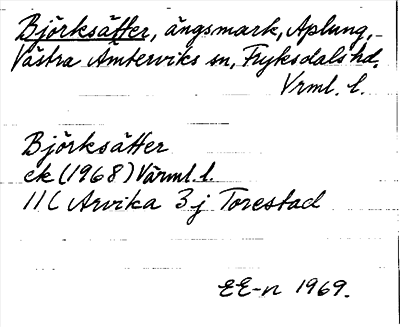 Björksätter, ängsmark, Aplung,
Västra Ämterviks sn, Fryksdals hd,
Vrml. l.
Björksätter
ek (1968) Värml. l.
11C Arvika 3j Torestad
EE-n 1969.